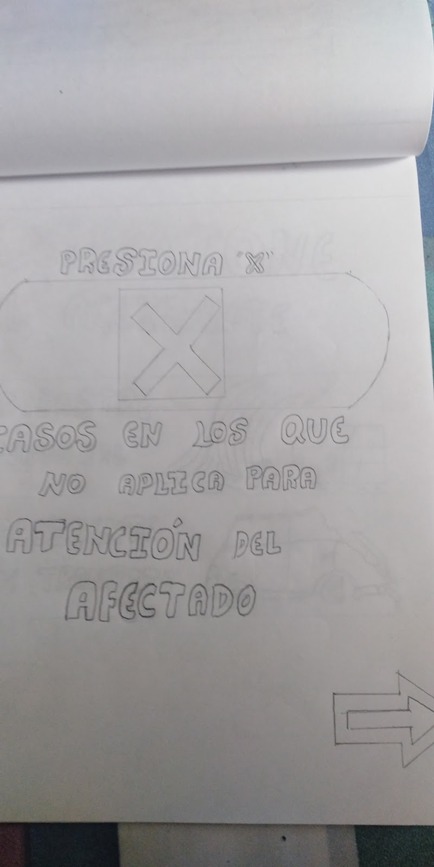 PRESIONA "X"
X
CASOS EN LOS QUE
NO APLICA PARA
ATENCIÓN DEL
AFECTADO